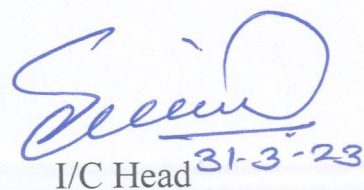 I/C Head 31-3-23